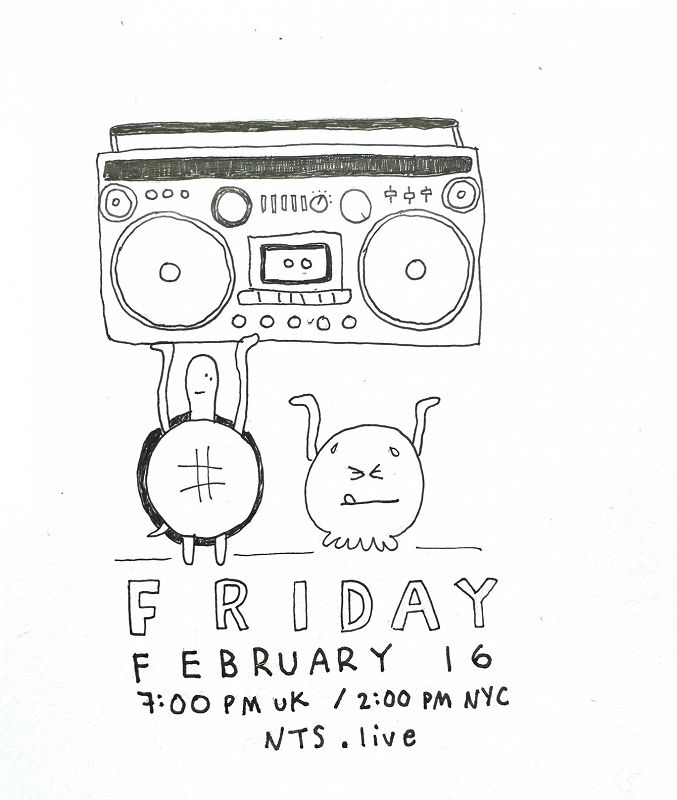 FRIDAY
FEBRUARY 16
7:00 PM UK / 2:00 PM NYC
NTS.live